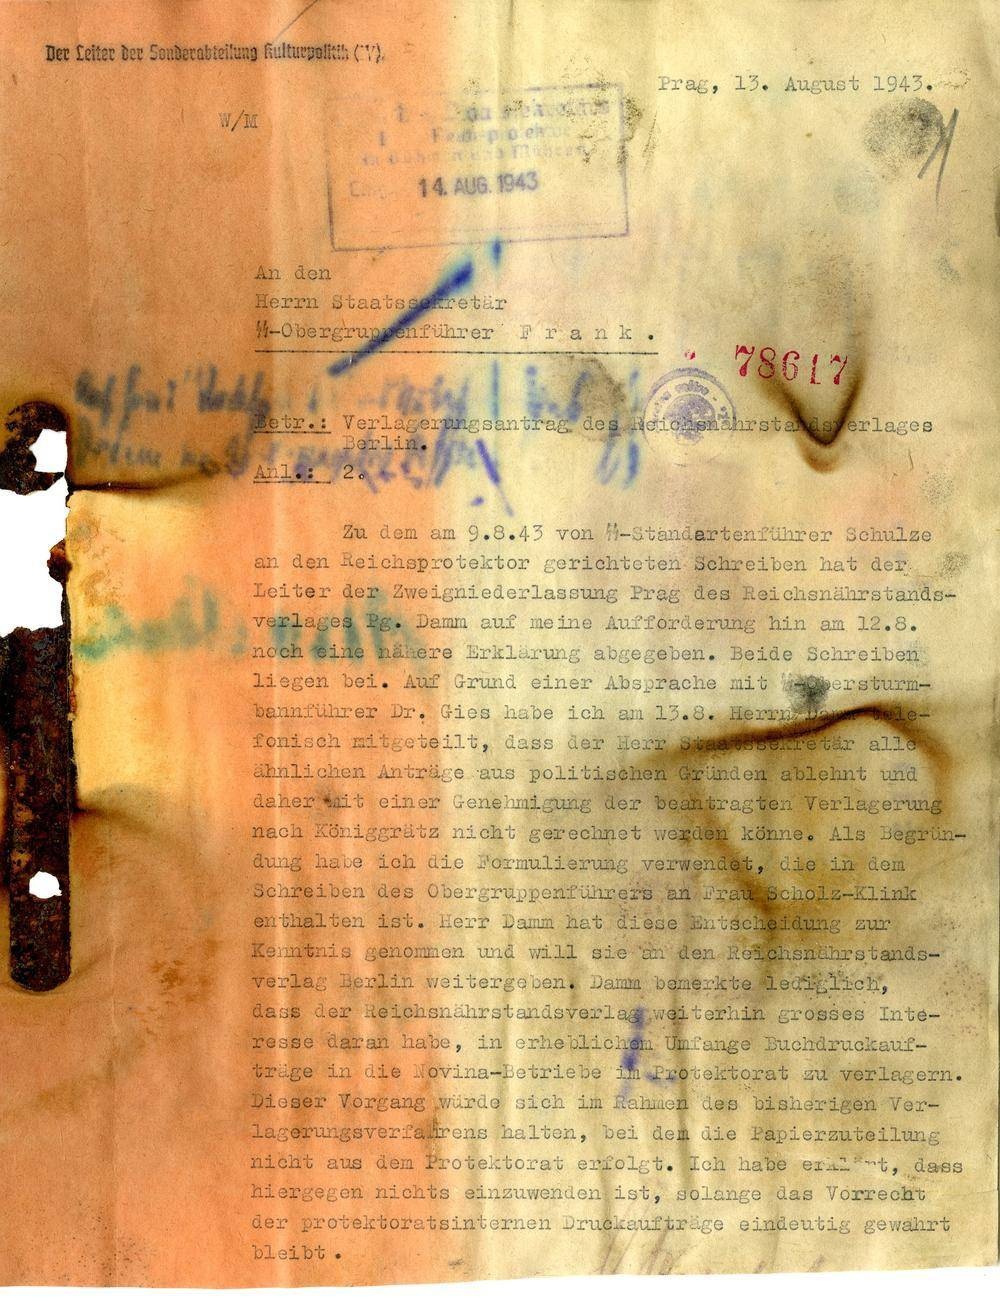 Der Leiter der Sonderabteilung Kulturpolitik
Prag, 13. August 1943.
W/M
14. AUG. 1943
An den
Herrn Staatssekretär
SS-Obergruppenführer F r a n k .
78617
Betr.: Verlagerungsantrag des Reichsnährstandsverlages
Berlin.
Anl.: 2.
Zu dem am 9.8.43 von SS-Standartenführer Schulze
an den Reichsprotektor gerichteten Schreiben hat der
Leiter der Zweigniederlassung Prag des Reichsnährstands-
verlages Pg. Damm auf meine Aufforderung hin am 12.8.
noch eine nähere Erklärung abgegeben. Beide Schreiben
liegen bei. Auf Grund einer Absprache mit SS-Obersturm-
bannführer Dr. Gies habe ich am 13.8. Herrn Damm tele-
fonisch mitgeteilt, dass der Herr Staatssekretär alle
ähnlichen Anträge aus politischen Gründen ablehnt und
daher mit einer Genehmigung der beantragten Verlagerung
nach Königgrätz nicht gerechnet werden könne. Als Begrün-
dung habe ich die Formulierung verwendet, die in dem
Schreiben des Obergruppenführers an Frau Scholz-Klink
enthalten ist. Herr Damm hat diese Entscheidung zur
Kenntnis genommen und will sie an den Reichsnährstands-
verlag Berlin weitergeben. Damm bemerkte lediglich,
dass der Reichsnährstandsverlag weiterhin grosses Inte-
resse daran habe, in erheblichem Umfange Buchdruckauf-
träge in die Novina-Betriebe im Protektorat zu verlagern.
Dieser Vorgang würde sich im Rahmen des bisherigen Ver-
lagerungsverfahrens halten, bei dem die Papierzuteilung
nicht aus dem Protektorat erfolgt. Ich habe erklärt, dass
hiergegen nichts einzuwenden ist, solange das Vorrecht
der protektoratsinternen Druckaufträge eindeutig gewahrt
bleibt.